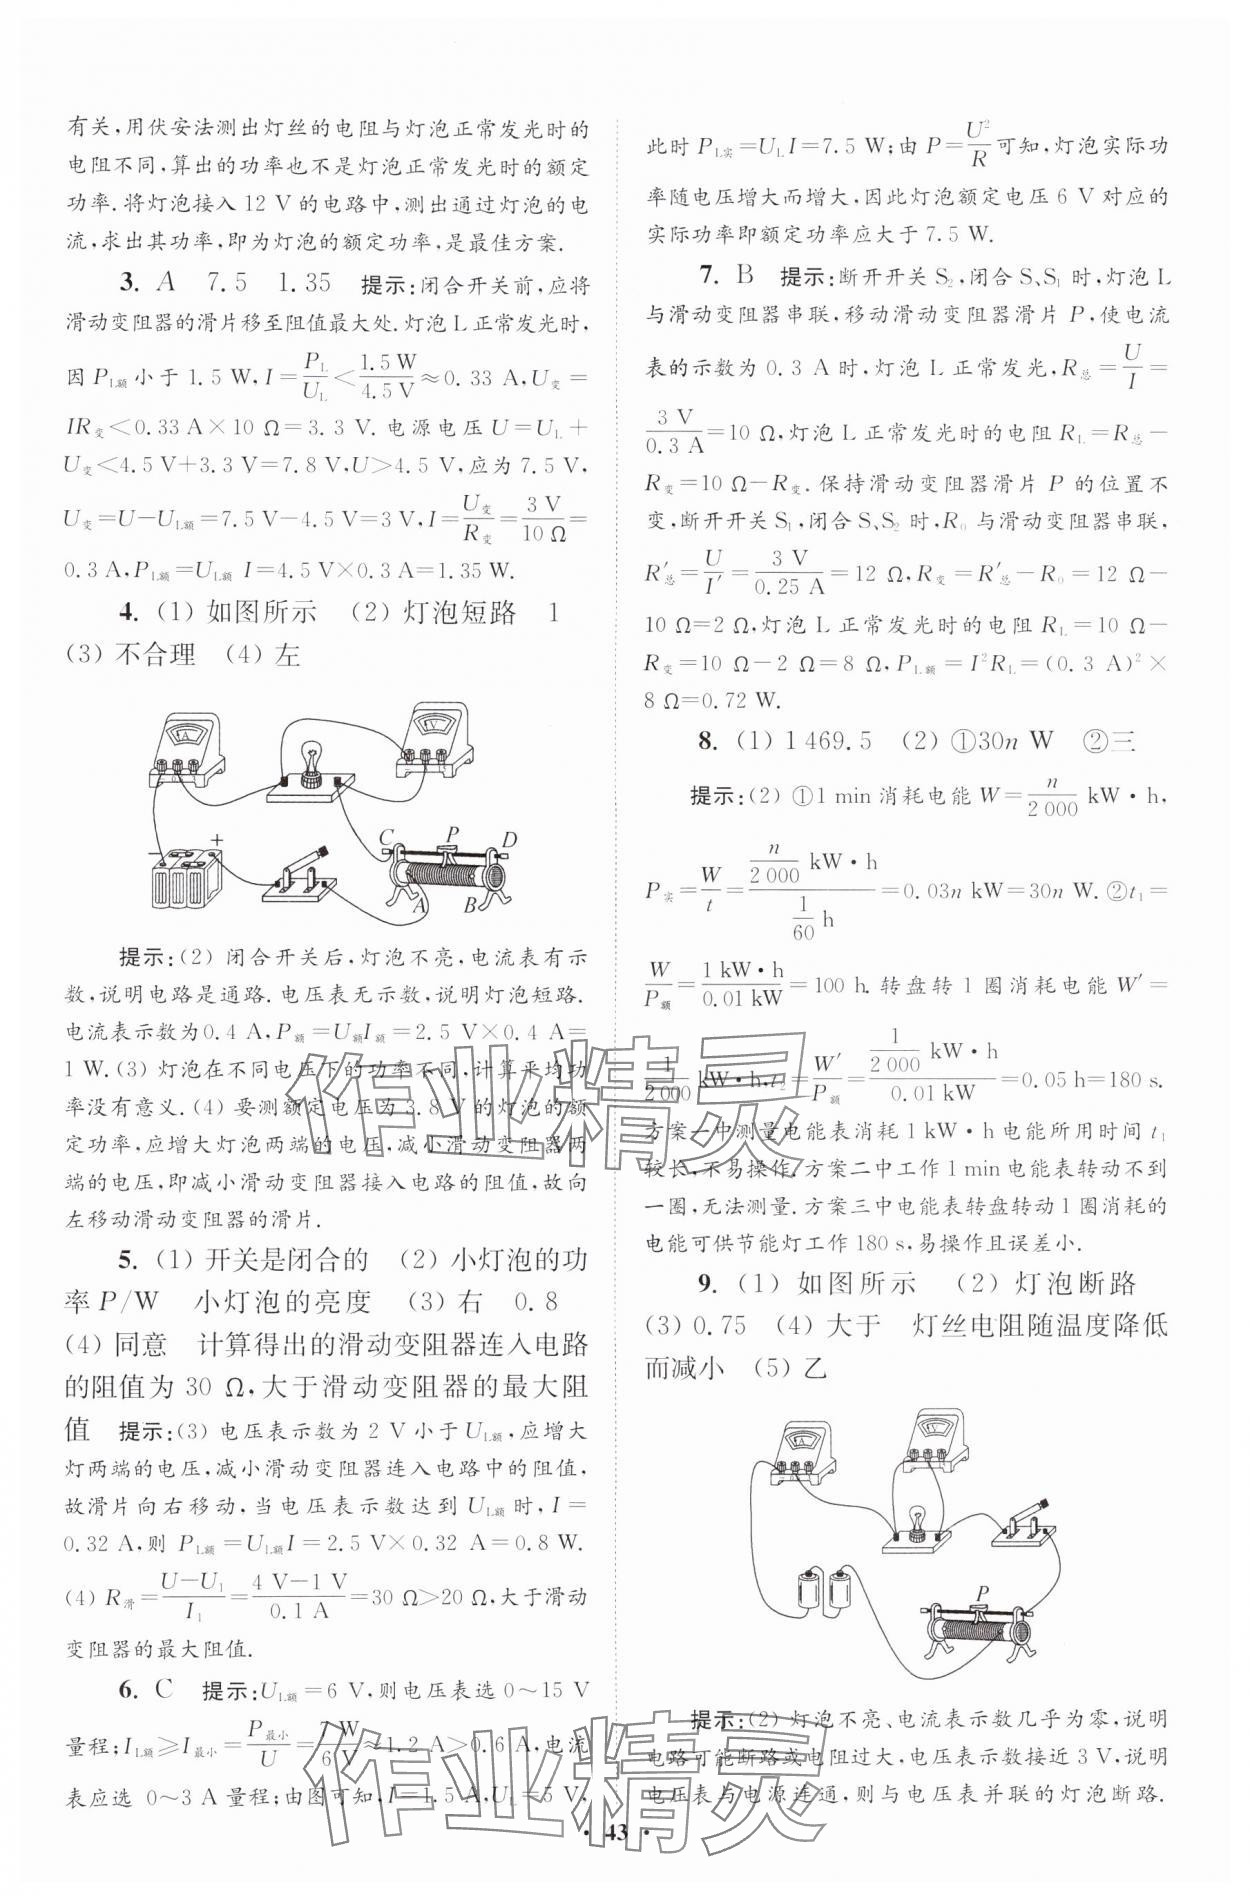 有关,用伏安法测出灯丝的电阻与灯泡正常发光时的
电阻不同,算出的功率也不是灯泡正常发光时的额定
功率.将灯泡接入 12 V 的电路中,测出通过灯泡的电
流,求出其功率,即为灯泡的额定功率,是最佳方案.
3. A 7.5 1.35 提示:闭合开关前,应将
滑动变阻器的滑片移至阻值最大处.灯泡 L 正常发光时,
因 P_L额 小于 1.5 W,I=P_L/U_L<1.5 W/4.5 V≈0.33 A,U_变=
IR_变<0.33 A×10 Ω=3.3 V.电源电压 U=U_L+
U_变<4.5 V+3.3 V=7.8 V,U>4.5 V,应为 7.5 V,
U_变=U-U_L额=7.5 V-4.5 V=3 V,I=U_变/R_变=3 V/10 Ω=
0.3 A,P_L额=U_L额 I=4.5 V×0.3 A=1.35 W.
4. (1) 如图所示 (2) 灯泡短路 1
(3) 不合理 (4) 左
A V
− + C P D
A B
提示:(2) 闭合开关后,灯泡不亮,电流表有示
数,说明电路是通路.电压表无示数,说明灯泡短路.
电流表示数为0.4 A,P_额=U_额I_额=2.5 V×0.4 A=
1 W.(3) 灯泡在不同电压下的功率不同,计算平均功
率没有意义.(4) 要测额定电压为 3.8 V 的灯泡的额
定功率,应增大灯泡两端的电压,减小滑动变阻器两
端的电压,即减小滑动变阻器接入电路的阻值,故向
左移动滑动变阻器的滑片.
5. (1) 开关是闭合的 (2) 小灯泡的功
率 P/W 小灯泡的亮度 (3) 右 0.8
(4) 同意 计算得出的滑动变阻器连入电路
的阻值为 30 Ω,大于滑动变阻器的最大阻
值 提示:(3) 电压表示数为 2 V 小于 U_L额,应增大
灯两端的电压,减小滑动变阻器连入电路中的阻值,
故滑片向右移动,当电压表示数达到 U_L额 时,I=
0.32 A,则 P_L额=U_L额I=2.5 V×0.32 A=0.8 W.
(4) R_滑=(U-U₁)/I₁=(4 V-1 V)/0.1 A=30 Ω>20 Ω,大于滑动
变阻器的最大阻值.
6. C 提示:U_L额=6 V,则电压表选 0~15 V
量程;I_L额≥I_最小=P_最小/U=7 W/6 V≈1.2 A>0.6 A,电流
表应选 0~3 A 量程;由图可知,I=1.5 A,U_L=5 V,
此时 P_L实=U_LI=7.5 W;由 P=U²/R可知,灯泡实际功
率随电压增大而增大,因此灯泡额定电压 6 V 对应的
实际功率即额定功率应大于 7.5 W.
7. B 提示:断开开关 S₂,闭合 S、S₁ 时,灯泡 L
与滑动变阻器串联,移动滑动变阻器滑片 P,使电流
表的示数为 0.3 A 时,灯泡 L 正常发光,R_总=U/I=
3 V/0.3 A=10 Ω,灯泡 L 正常发光时的电阻 R_L=R_总-
R_变=10 Ω-R_变.保持滑动变阻器滑片 P 的位置不
变,断开开关 S₁,闭合 S、S₂ 时,R₀ 与滑动变阻器串联,
R′_总=U/I′=3 V/0.25 A=12 Ω,R_变=R′_总-R₀=12 Ω-
10 Ω=2 Ω,灯泡 L 正常发光时的电阻 R_L=10 Ω-
R_变=10 Ω-2 Ω=8 Ω,P_L额=I²R_L=(0.3 A)²×
8 Ω=0.72 W.
8. (1) 1 469.5 (2) ①30n W ②三
提示:(2) ①1 min 消耗电能 W=n/2 000 kW·h,
P_实=W/t=(n/2 000 kW·h)/(1/60 h)=0.03n kW=30n W.②t₁=
W/P_额=1 kW·h/0.01 kW=100 h.转盘转 1 圈消耗电能 W′=
1/2 000 kW·h,t₂=W′/P_额=(1/2 000 kW·h)/0.01 kW=0.05 h=180 s.
方案一中测量电能表消耗 1 kW·h 电能所用时间 t₁
较长,不易操作.方案二中工作 1 min 电能表转动不到
一圈,无法测量.方案三中电能表转盘转动 1 圈消耗的
电能可供节能灯工作 180 s,易操作且误差小.
9. (1) 如图所示 (2) 灯泡断路
(3) 0.75 (4) 大于 灯丝电阻随温度降低
而减小 (5) 乙
A V
P
提示:(2) 灯泡不亮、电流表示数几乎为零,说明
电路可能断路或电阻过大,电压表示数接近 3 V,说明
电压表与电源连通,则与电压表并联的灯泡断路.
· 43 ·
作业精灵
作业精灵